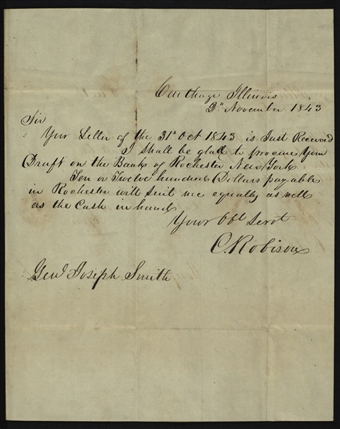 Carthage Illinois
3d November 1843
Sir
Your Letter of the 31st Oct 1843 is Just Received
I Shall be glad to procure Your
Draft on the Bank of Rochester New York
Ten or Twelve hundred Dollars payable
in Rochester will Suit me equally as well
as the Cash in hand
Your Obt Servt
C. Robison
Genl Joseph Smith